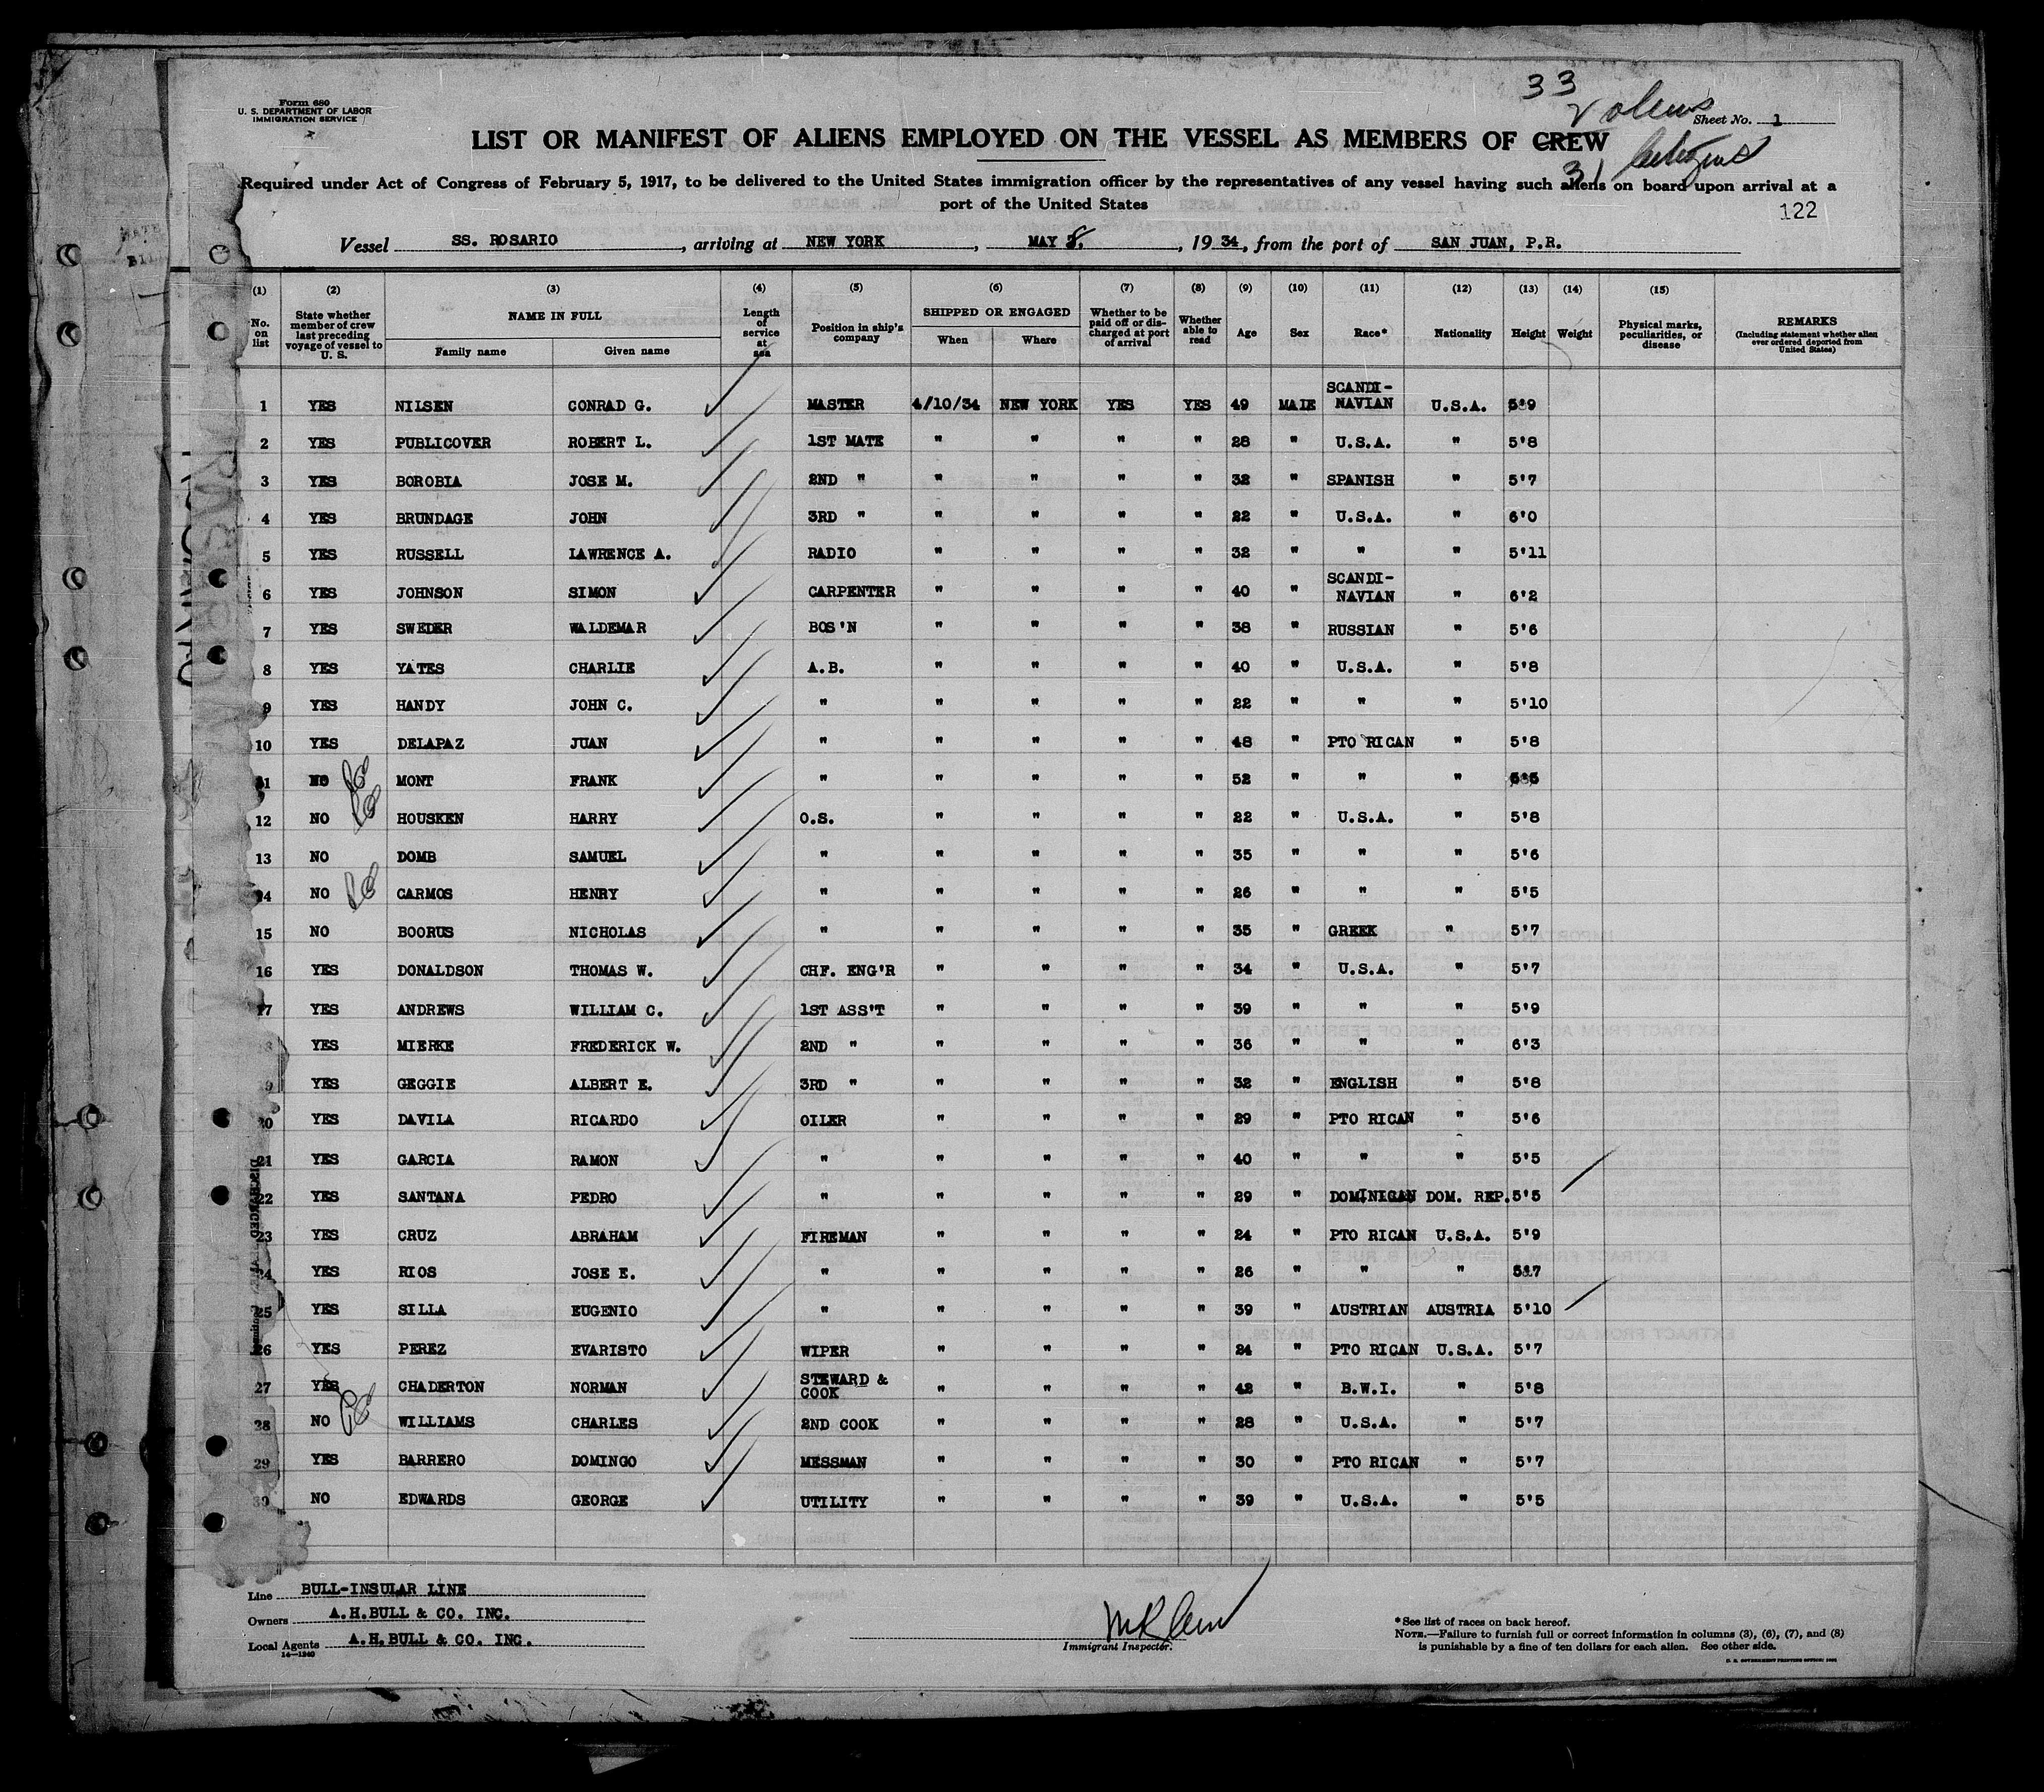 33
2 aliens
31 Citizens
Form 680
U. S. DEPARTMENT OF LABOR
IMMIGRATION SERVICE
Sheet No. 1
LIST OR MANIFEST OF ALIENS EMPLOYED ON THE VESSEL AS MEMBERS OF CREW
Required under Act of Congress of February 5, 1917, to be delivered to the United States immigration officer by the representatives of any vessel having such aliens on board upon arrival at a
port of the United States
122
Vessel SS. ROSARIO, arriving at NEW YORK, MAY 8, 1934, from the port of SAN JUAN, P.R.
(1) (2) (3) (4) (5) (6) (7) (8) (9) (10) (11) (12) (13) (14) (15)
No. on list State whether member of crew last preceding voyage of vessel to U. S. NAME IN FULL Family name Given name Length of service at sea Position in ship's company SHIPPED OR ENGAGED When Where Whether to be paid off or discharged at port of arrival Whether able to read Age Sex Race* Nationality Height Weight Physical marks, peculiarities, or disease REMARKS (Including statement whether alien ever ordered deported from United States)
1 YES NILSEN CONRAD G. MASTER 4/10/34 NEW YORK YES YES 49 MALE SCANDI-NAVIAN U.S.A. 5'9
2 YES PUBLICOVER ROBERT L. 1ST MATE " " " " 28 " U.S.A. " 5'8
3 YES BOROBIA JOSE M. 2ND " " " " " 32 " SPANISH " 5'7
4 YES BRUNDAGE JOHN 3RD " " " " " 22 " U.S.A. " 6'0
5 YES RUSSELL LAWRENCE A. RADIO " " " " 32 " " " 5'11
6 YES JOHNSON SIMON CARPENTER " " " " 40 " SCANDI-NAVIAN " 6'2
7 YES SWEDER WALDEMAR BOS'N " " " " 38 " RUSSIAN " 5'6
8 YES YATES CHARLIE A.B. " " " " 40 " U.S.A. " 5'8
9 YES HANDY JOHN C. " " " " " 22 " " " 5'10
10 YES DELAPAZ JUAN " " " " " 48 " PTO RICAN " 5'8
11 NO MONT FRANK " " " " " 52 " " "
12 NO HOUSKEN HARRY O.S. " " " " 22 " U.S.A. " 5'8
13 NO DOMB SAMUEL " " " " " 35 " " " 5'6
14 NO CARMOS HENRY " " " " " 26 " " " 5'5
15 NO BOORUS NICHOLAS " " " " " 35 " GREEK " 5'7
16 YES DONALDSON THOMAS W. CHF. ENG'R " " " " 34 " U.S.A. " 5'7
17 YES ANDREWS WILLIAM C. 1ST ASS'T " " " " 39 " " " 5'9
18 YES MIERKE FREDERICK W. 2ND " " " " " 36 " " " 6'3
19 YES GEGGIE ALBERT E. 3RD " " " " " 32 " ENGLISH " 5'8
20 YES DAVILA RICARDO OILER " " " " 29 " PTO RICAN " 5'6
21 YES GARCIA RAMON " " " " " 40 " " " 5'5
22 YES SANTANA PEDRO " " " " " 29 " DOMINICAN DOM. REP. 5'5
23 YES CRUZ ABRAHAM FIREMAN " " " " 24 " PTO RICAN U.S.A. 5'9
24 YES RIOS JOSE E. " " " " " 26 " " " 5'7
25 YES SILLA EUGENIO " " " " " 39 " AUSTRIAN AUSTRIA 5'10
26 YES PEREZ EVARISTO WIPER " " " " 24 " PTO RICAN U.S.A. 5'7
27 YES CHADERTON NORMAN STEWARD & COOK " " " " 42 " B.W.I. " 5'8
28 NO WILLIAMS CHARLES 2ND COOK " " " " 28 " U.S.A. " 5'7
29 YES BARRERO DOMINGO MESSMAN " " " " 30 " PTO RICAN " 5'7
30 NO EDWARDS GEORGE UTILITY " " " " 39 " U.S.A. " 5'5
Line BULL-INSULAR LINE
Owners A.H.BULL & CO. INC.
Local Agents A.H.BULL & CO. INC.
14—1240
Immigrant Inspector.
*See list of races on back hereof.
NOTE.—Failure to furnish full or correct information in columns (3), (6), (7), and (8)
is punishable by a fine of ten dollars for each alien. See other side.